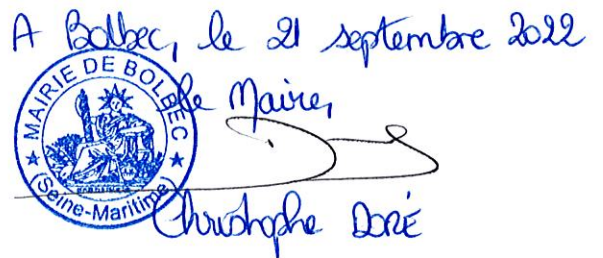 A Bolbec, le 21 septembre 2022
MAIRIE DE BOLBEC
(Seine-Maritime)
le Maire,
Christophe DORÉ